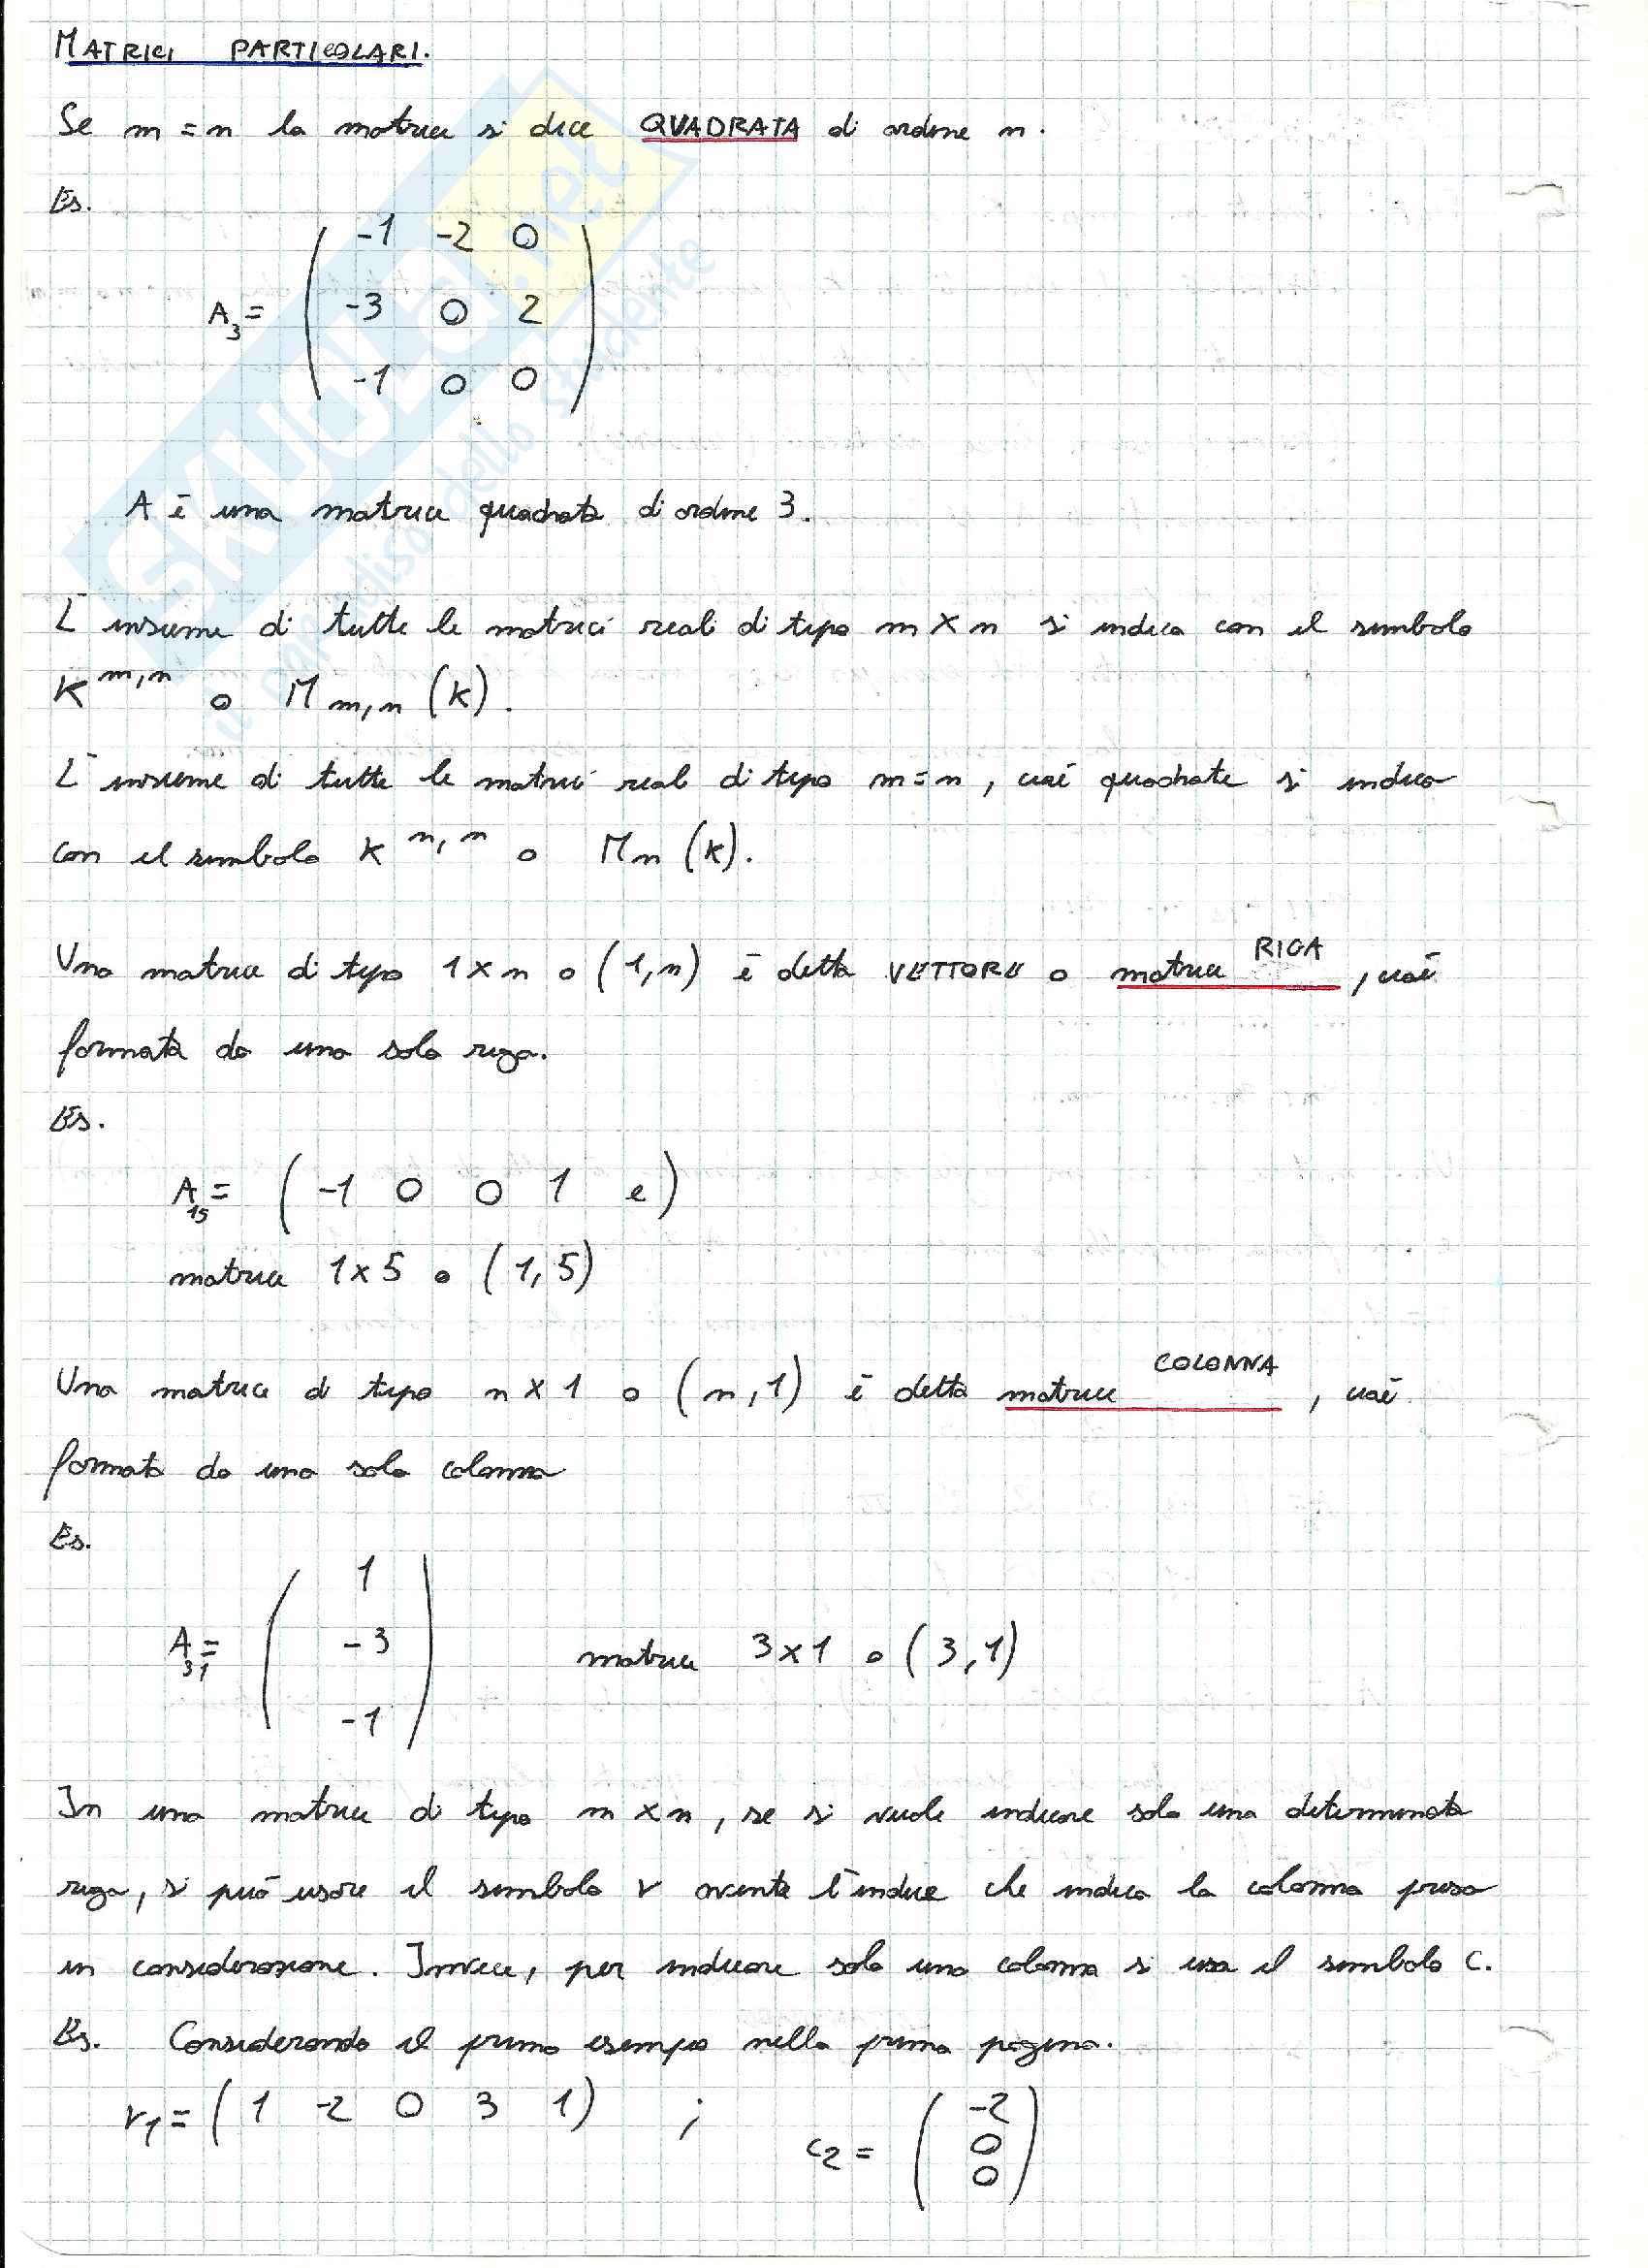 MATRICI PARTICOLARI.
Se m = n la matrice si dice QUADRATA di ordine n.
Es.
-1 -2 0
A3 = -3 0 2
-1 0 0
A è una matrice quadrata di ordine 3.
L'insieme di tutte le matrici reali di tipo m x n si indica con il simbolo
K^m,n o M m,n (K).
L'insieme di tutte le matrici reali di tipo m = n, cioè quadrate si indica
con il simbolo K^n,n o Mn (K).
Una matrice di tipo 1 x n o (1, n) è detta VETTORE o matrice RIGA, cioè
formata da una sola riga.
Es.
A15 = ( -1 0 0 1 e )
matrice 1x5 o (1, 5)
Una matrice di tipo n x 1 o (n, 1) è detta matrice COLONNA, cioè
formata da una sola colonna
Es.
1
A31 = -3 matrice 3x1 o (3, 1)
-1
In una matrice di tipo m x n, se si vuole indicare solo una determinata
riga, si può usare il simbolo r avente l'indice che indica la colonna presa
in considerazione. Invece, per indicare solo una colonna si usa il simbolo c.
Es. Considerando il primo esempio nella prima pagina.
r1 = ( 1 -2 0 3 1 ) ; -2
c2 = 0
0
SKUOLA.net
il paradiso dello studente